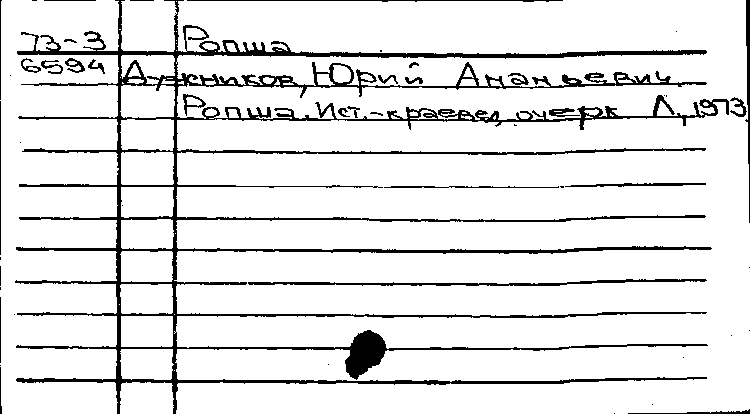 73-3 Ропша
6594 Дужников, Юрий Ананьевич
Ропша. Ист.-краевед. очерк Л., 1973